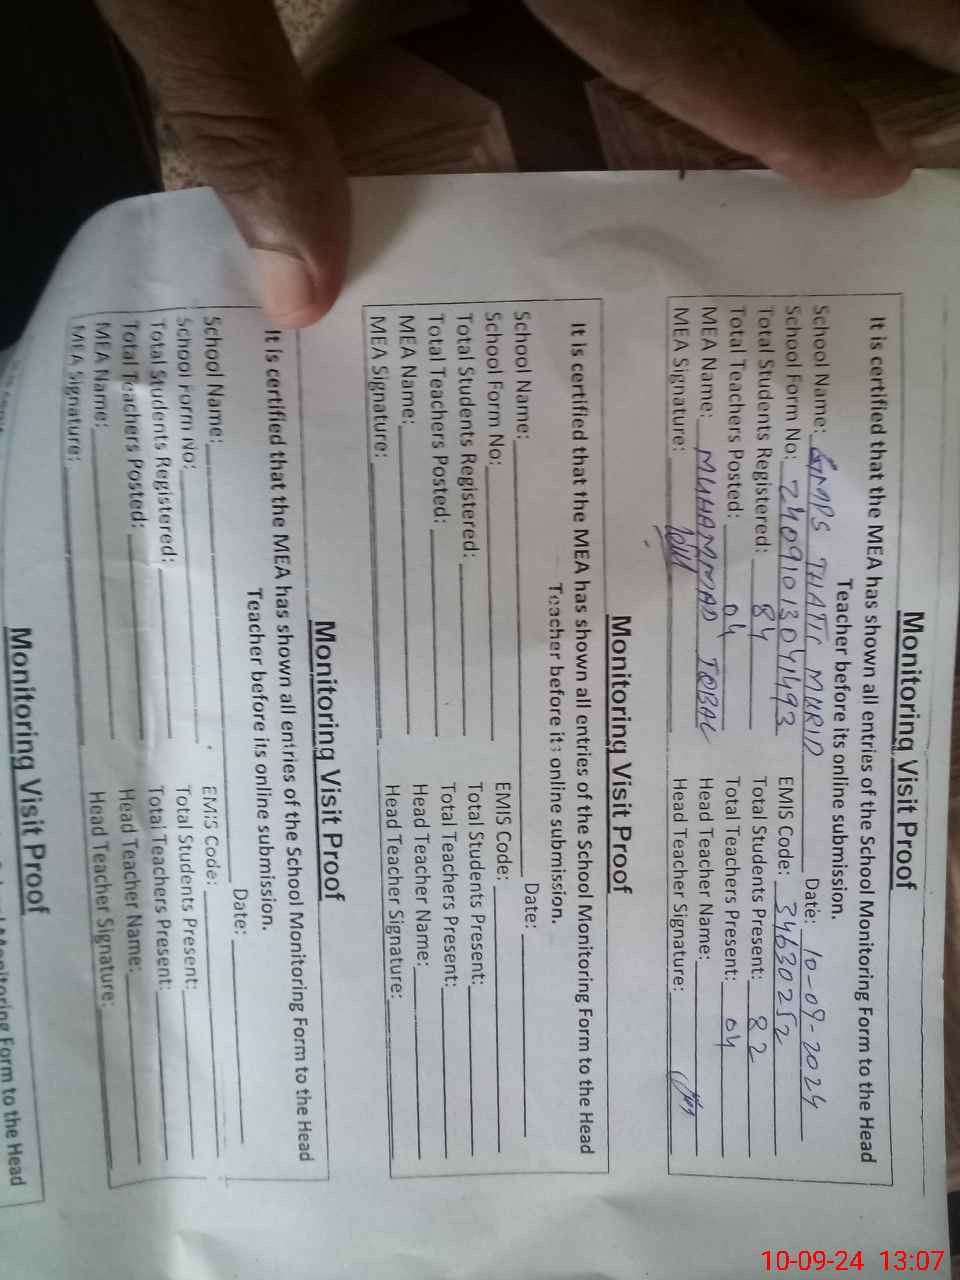 Monitoring Visit Proof
It is certified that the MEA has shown all entries of the School Monitoring Form to the Head
Teacher before its online submission.
School Name: GMPS THATTI MURID Date: 10-09-2024
School Form No: 24091013041493 EMIS Code: 34630252
Total Students Registered: 84 Total Students Present: 82
Total Teachers Posted: 04 Total Teachers Present: 04
MEA Name: MUHAMMAD IQBAL Head Teacher Name:
MEA Signature: Head Teacher Signature:
Monitoring Visit Proof
It is certified that the MEA has shown all entries of the School Monitoring Form to the Head
Teacher before its online submission.
School Name: Date:
School Form No: EMIS Code:
Total Students Registered: Total Students Present:
Total Teachers Posted: Total Teachers Present:
MEA Name: Head Teacher Name:
MEA Signature: Head Teacher Signature:
Monitoring Visit Proof
It is certified that the MEA has shown all entries of the School Monitoring Form to the Head
Teacher before its online submission.
School Name: Date:
School Form No: EMIS Code:
Total Students Registered: Total Students Present:
Total Teachers Posted: Total Teachers Present:
MEA Name: Head Teacher Name:
MEA Signature: Head Teacher Signature:
Monitoring Visit Proof
Monitoring Form to the Head
10-09-24 13:07